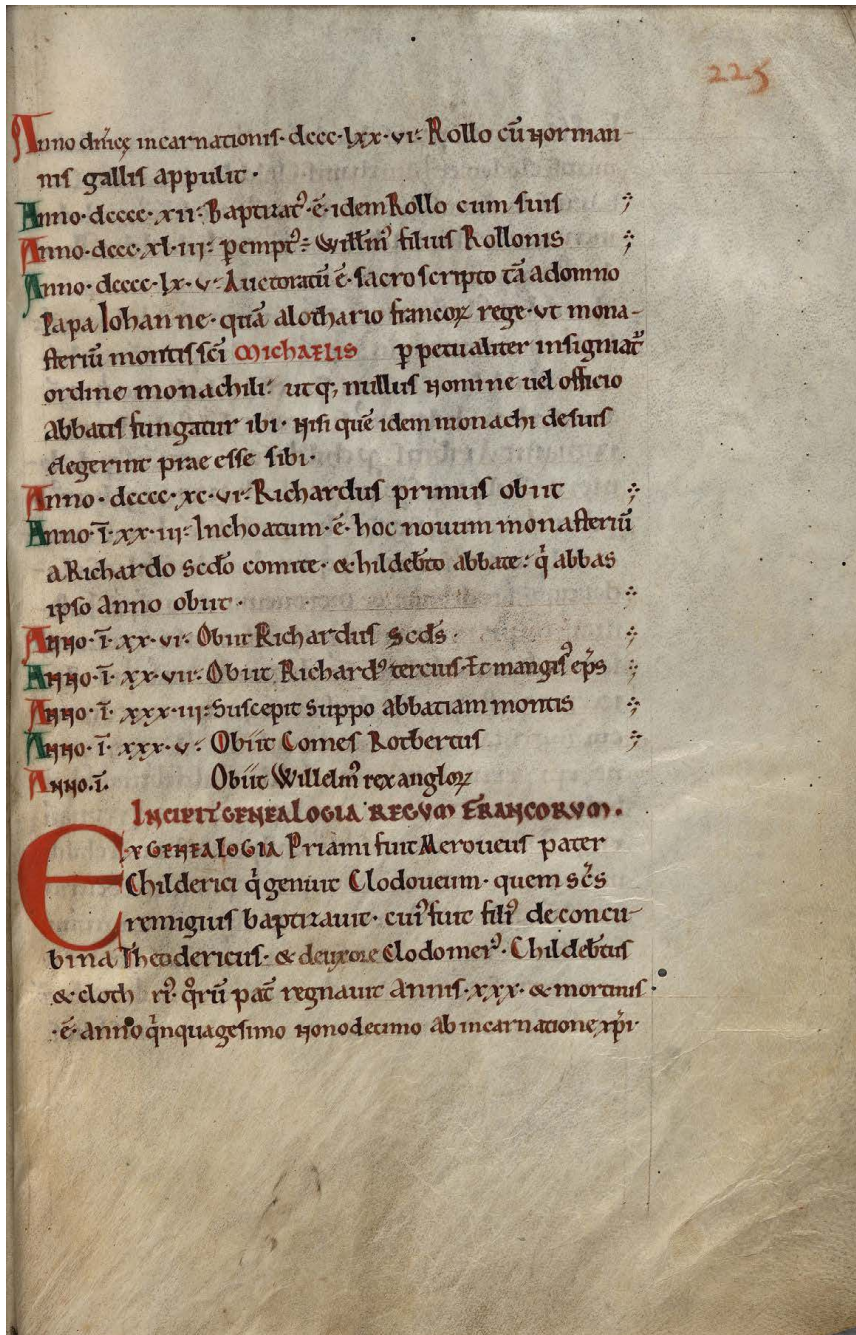 225
Anno dnicę incarnationis· dccc·lxx·vi· Rollo cū norman-
nis gallis appulit·
Anno·dcccc·xii· Baptizat᾽ ē idem Rollo cum suis
Anno·dccc·xl·iii· ꝑempt᾽ ÷ Willm᾽ filius Rollonis
Anno·dcccc·lx·v· Auctoratū ē· sacro scripto tā a domno
Papa Iohanne· quā a lothario francoꝝ rege· ut mona-
steriū montis sc̄i Michaelis ꝑpetualiter insigniat᾽
ordine monachili· utq; nullus nomine uel officio
abbatis fungatur ibi· nisi quē idem monachi de suis
elegerint prae esse sibi·
Anno·dcccc·xc·vi· Richardus primus obiit
Anno·ī·xx·iii· Inchoatum·ē· hoc novum monasteriū
a Richardo scd̄o comite· & hildeb̄to abbate· q̄ abbas
ipso anno obiit·
Anno·ī·xx·vi· Obiit Richardus scds·
Anno·ī·xx·vii· Obiit Richard᾽ tercius· Et mangis᾽ ep̄s
Anno·ī·xxx·iii· Suscepit Suppo abbatiam montis
Anno·ī·xxx·v· Obiit Comes Rotbertus
Anno·ī· Obiit Willelm᾽ rex angloꝝ
Incipit genealogia regum francorum.
Ex genealogia Priami fuit Meroveus pater
Childerici q̄ genuit Clodoveum· quem sc̄s
remigius baptizavit· cui᾽ fuit fili᾽ de concu-
bina Theodericus· & de uxore Clodomer᾽· Childeb̄tus
& cloth ri᾽· q̄rū pat̄ regnavit annis·xxx· & mortuus·
·ē· anno q̄nquagesimo nonodecimo ab incarnatione xp̄i·